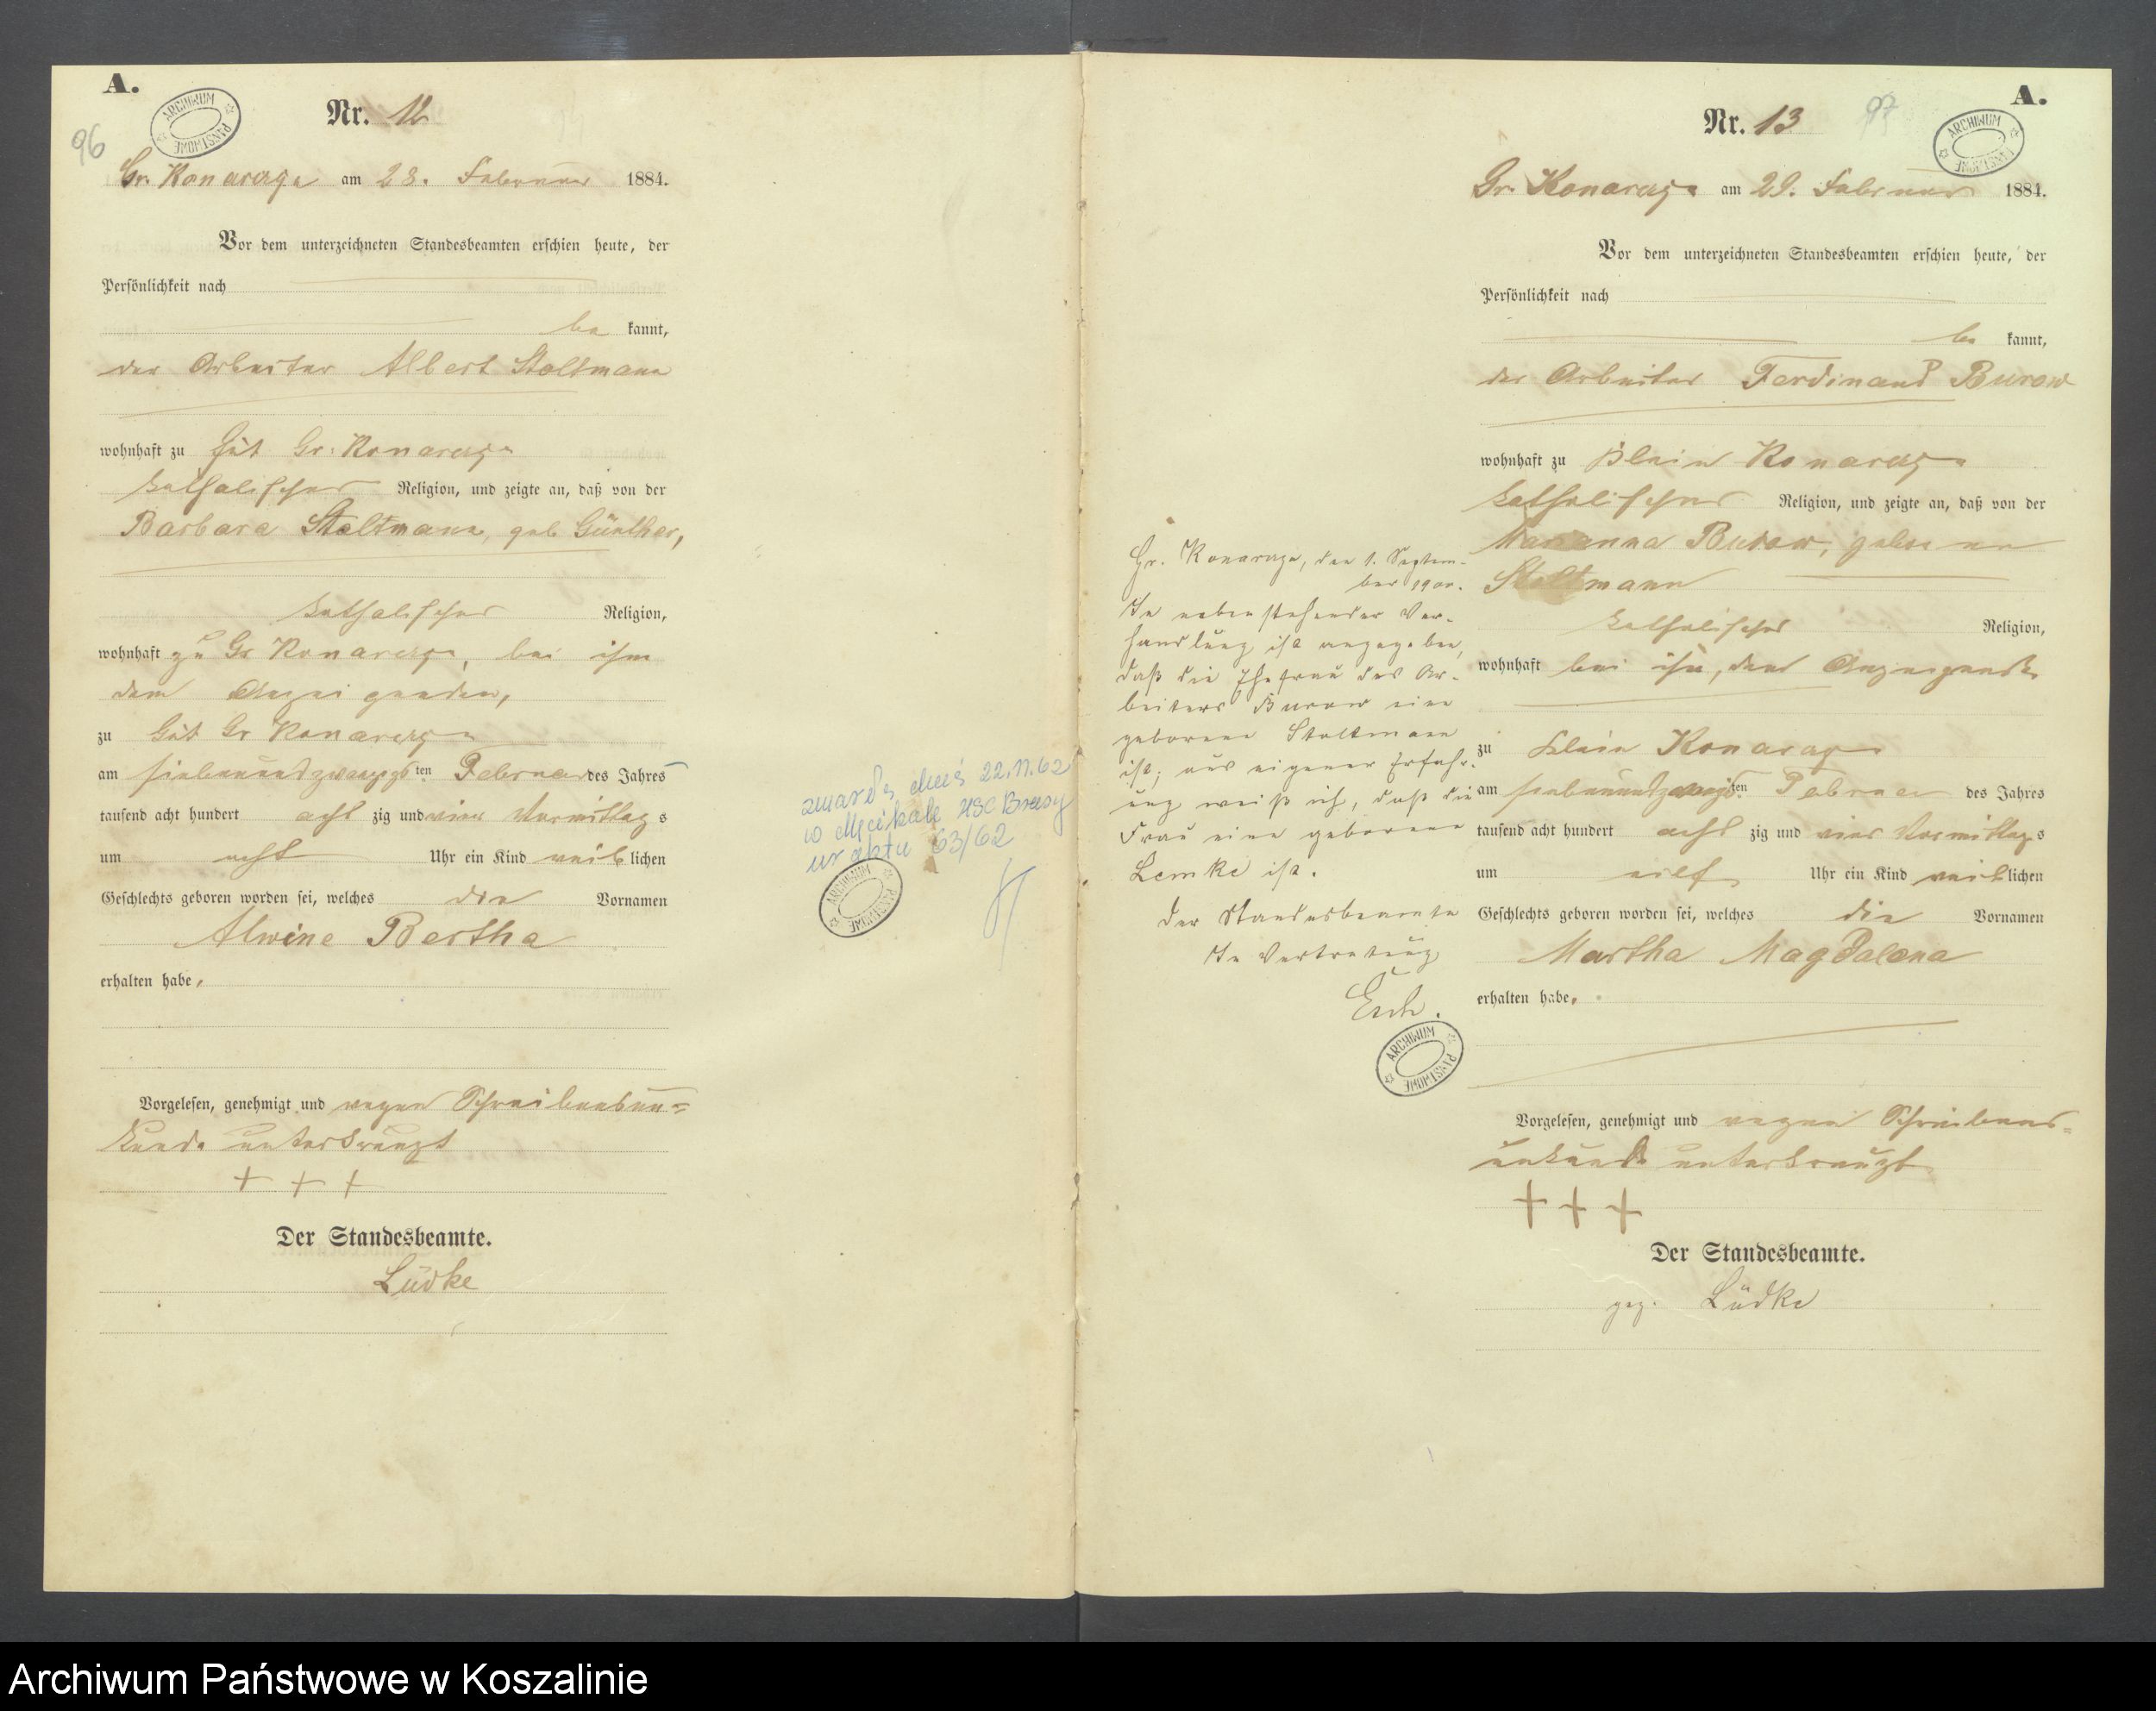 A.
96
ARCHIWUM PAŃSTWOWE
Nr. 12
Gr. Konarczyn am 28. Februar 1884.
Vor dem unterzeichneten Standesbeamten erschien heute, der
Persönlichkeit nach
be kannt,
der Arbeiter Albert Stoltmann
wohnhaft zu Gut Gr. Konarczyn
katholischer Religion, und zeigte an, daß von der
Barbara Stoltmann, geb Günther,
katholischer Religion,
wohnhaft zu Gr Konarczyn, bei ihm
dem Anzeigenden,
zu Gut Gr Konarczyn
am siebenundzwanzigsten Februar des Jahres
tausend acht hundert acht zig und vier Vormittag s
um acht Uhr ein Kind weib lichen
Geschlechts geboren worden sei, welches die Vornamen
Alwine Bertha
erhalten habe,
Vorgelesen, genehmigt und wegen Schreibensun=
kunde unterkreuzt
+ + +
Der Standesbeamte.
Lüdke
22.11.62
w USC Brusy
nr aktu 63/62
ARCHIWUM PAŃSTWOWE
A.
97
ARCHIWUM PAŃSTWOWE
Nr. 13
Gr. Konarczyn am 29. Februar 1884.
Vor dem unterzeichneten Standesbeamten erschien heute, der
Persönlichkeit nach
be kannt,
der Arbeiter Ferdinand Burow
wohnhaft zu Klein Konarczyn
katholischer Religion, und zeigte an, daß von der
Marianna Burow, geborenen
Stoltmann
katholischer Religion,
wohnhaft bei ihm, dem Anzeigenden
zu Klein Konarczyn
am siebenundzwanzigsten Februar des Jahres
tausend acht hundert acht zig und vier Vormittag s
um eilf Uhr ein Kind weib lichen
Geschlechts geboren worden sei, welches die Vornamen
Martha Magdalena
erhalten habe.
Vorgelesen, genehmigt und wegen Schreibens=
unkunde unterkreuzt
+ + +
Der Standesbeamte.
gez. Lüdke
Gr. Konarczyn, den 1. Septem-
ber 1900.
In nebenstehender Ver-
handlung ist angegeben,
daß die Ehefrau des Ar-
beiters Burow eine
geborene Stoltmann
ist; aus eigener Erfahr-
ung weiß ich, daß die
Frau eine geborene
Lemke ist.
Der Standesbeamte
In Vertretung
ARCHIWUM PAŃSTWOWE
Archiwum Państwowe w Koszalinie